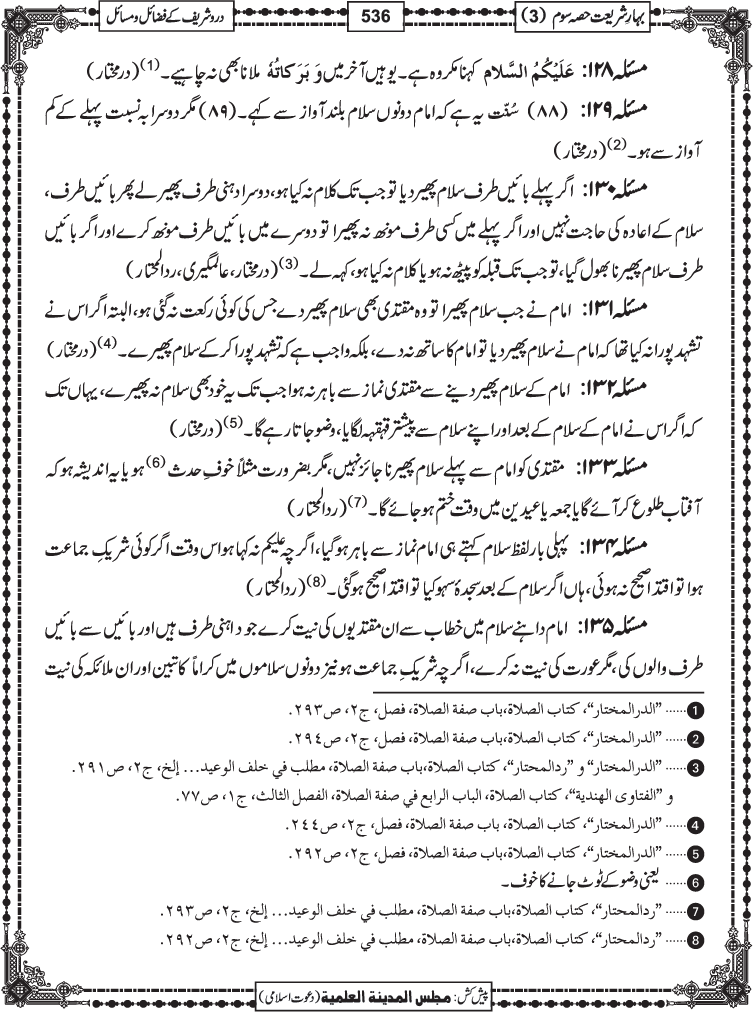 بہارِ شریعت حصہ سوم (3)
536
درود شریف کے فضائل و مسائل
مسئلہ ۱۲۸: عَلَیْکُمُ السَّلام کہنا مکروہ ہے۔ یوہیں آخر میں وَ بَرَکاتُہٗ ملانا بھی نہ چاہیے۔ (1) (درمختار)
مسئلہ ۱۲۹: (۸۸) سُنّت یہ ہے کہ امام دونوں سلام بلند آواز سے کہے۔ (۸۹) مگر دوسرا بہ نسبت پہلے کے کم
آواز سے ہو۔ (2) (درمختار)
مسئلہ ۱۳۰: اگر پہلے بائیں طرف سلام پھیر دیا تو جب تک کلام نہ کیا ہو، دوسرا دہنی طرف پھیر لے پھر بائیں طرف،
سلام کے اعادہ کی حاجت نہیں اور اگر پہلے میں کسی طرف مونھ نہ پھیرا تو دوسرے میں بائیں طرف مونھ کرے اور اگر بائیں
طرف سلام پھیرنا بھول گیا، تو جب تک قبلہ کو پیٹھ نہ ہو یا کلام نہ کیا ہو، کہہ لے۔ (3) (درمختار، عالمگیری، ردالمحتار)
مسئلہ ۱۳۱: امام نے جب سلام پھیرا تو وہ مقتدی بھی سلام پھیر دے جس کی کوئی رکعت نہ گئی ہو، البتہ اگر اس نے
تشہد پورا نہ کیا تھا کہ امام نے سلام پھیر دیا تو امام کا ساتھ نہ دے، بلکہ واجب ہے کہ تشہد پورا کر کے سلام پھیرے۔ (4) (درمختار)
مسئلہ ۱۳۲: امام کے سلام پھیر دینے سے مقتدی نماز سے باہر نہ ہوا جب تک یہ خود بھی سلام نہ پھیرے، یہاں تک
کہ اگر اس نے امام کے سلام کے بعد اور اپنے سلام سے پیشتر قہقہہ لگایا، وضو جاتا رہے گا۔ (5) (درمختار)
مسئلہ ۱۳۳: مقتدی کو امام سے پہلے سلام پھیرنا جائز نہیں، مگر بضرورت مثلاً خوفِ حدث (6) ہو یا یہ اندیشہ ہو کہ
آفتاب طلوع کر آئے گا یا جمعہ یا عیدین میں وقت ختم ہو جائے گا۔ (7) (ردالمحتار)
مسئلہ ۱۳۴: پہلی بار لفظ سلام کہتے ہی امام نماز سے باہر ہو گیا، اگرچہ علیکم نہ کہا ہو اس وقت اگر کوئی شریکِ جماعت
ہوا تو اقتدا صحیح نہ ہوئی، ہاں اگر سلام کے بعد سجدۂ سہو کیا تو اقتدا صحیح ہو گئی۔ (8) (ردالمحتار)
مسئلہ ۱۳۵: امام داہنے سلام میں خطاب سے ان مقتدیوں کی نیت کرے جو داہنی طرف ہیں اور بائیں سے بائیں
طرف والوں کی، مگر عورت کی نیت نہ کرے، اگرچہ شریکِ جماعت ہو نیز دونوں سلاموں میں کراماً کاتبین اور ان ملائکہ کی نیت
1 ...... ”الدرالمختار“، کتاب الصلاة، باب صفة الصلاة، فصل، ج۲، ص۲۹۳.
2 ...... ”الدرالمختار“، کتاب الصلاة، باب صفة الصلاة، فصل، ج۲، ص۲۹٤.
3 ...... ”الدرالمختار“ و ”ردالمحتار“، کتاب الصلاة، باب صفة الصلاة، مطلب في خلف الوعید... إلخ، ج۲، ص۲۹۱.
و ”الفتاوی الهندیة“، کتاب الصلاة، الباب الرابع في صفة الصلاة، الفصل الثالث، ج۱، ص۷۷.
4 ...... ”الدرالمختار“، کتاب الصلاة، باب صفة الصلاة، فصل، ج۲، ص۲٤٤.
5 ...... ”الدرالمختار“، کتاب الصلاة، باب صفة الصلاة، فصل، ج۲، ص۲۹۲.
6 ...... یعنی وضو کے ٹوٹ جانے کا خوف۔
7 ...... ”ردالمحتار“، کتاب الصلاة، باب صفة الصلاة، مطلب في خلف الوعید... إلخ، ج۲، ص۲۹۳.
8 ...... ”ردالمحتار“، کتاب الصلاة، باب صفة الصلاة، مطلب في خلف الوعید... إلخ، ج۲، ص۲۹۲.
پیش کش: مجلس المدینة العلمیة (دعوتِ اسلامی)